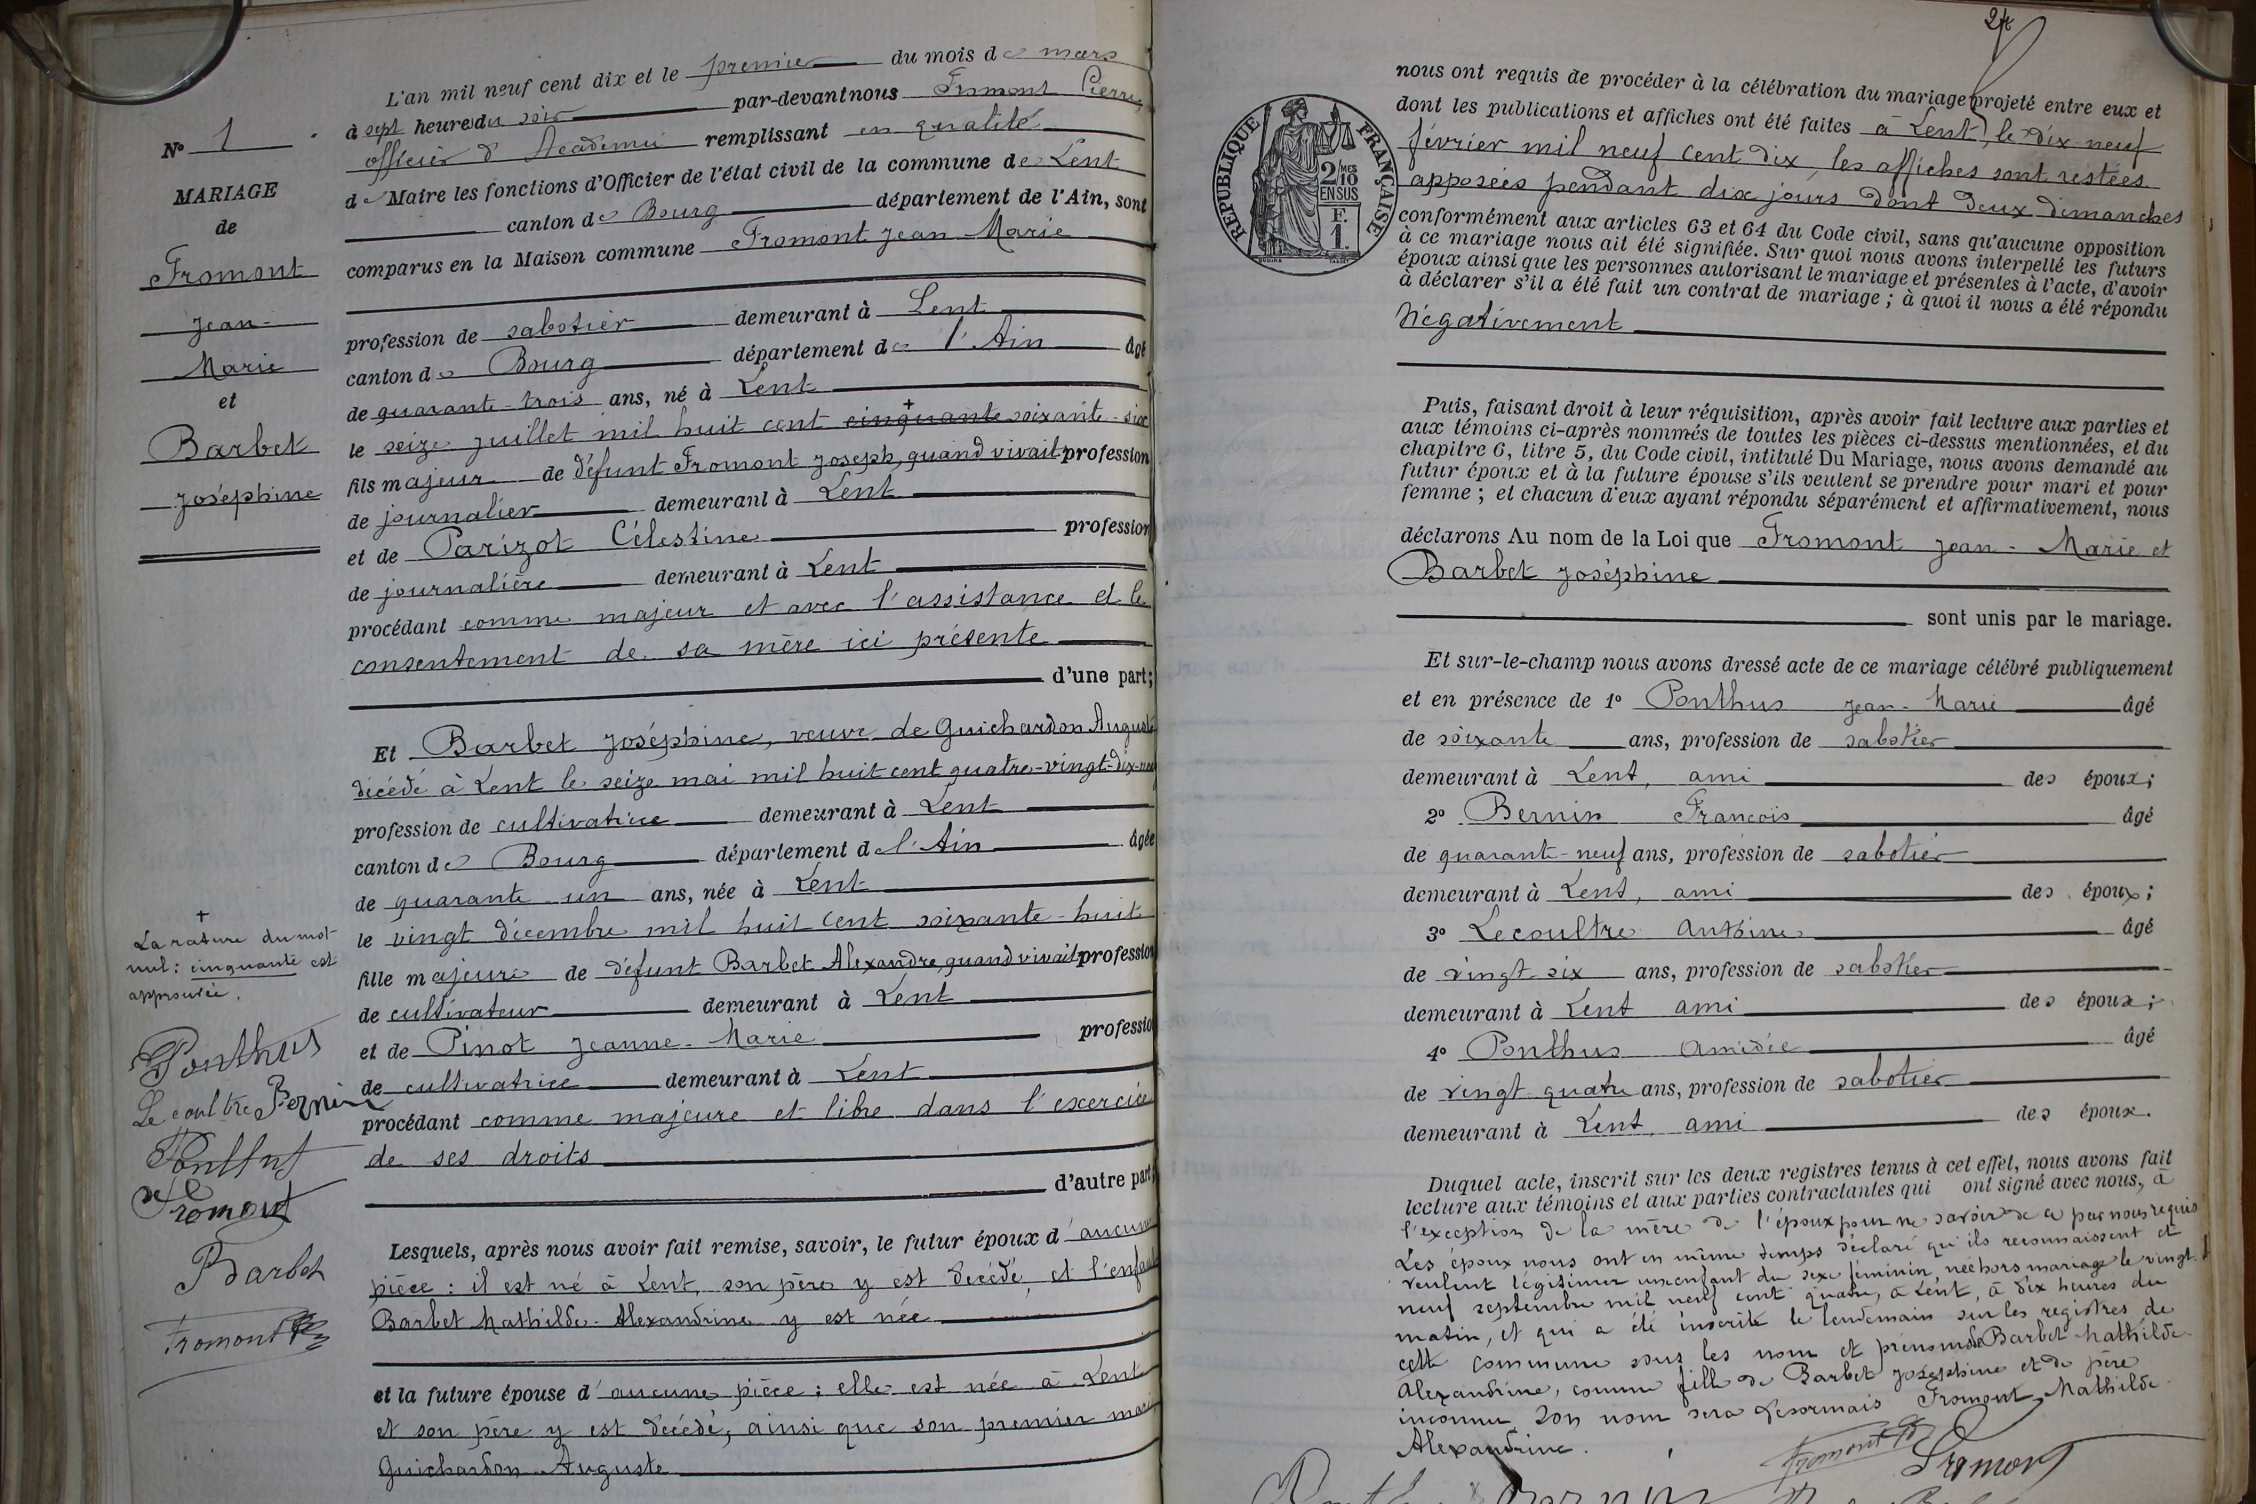 L'an mil neuf cent dix et le premier du mois de mars
à sept heure du soir par-devant nous Fromont Pierre,
officier d'Académie remplissant en qualité
de Maire les fonctions d'Officier de l'état civil de la commune de Lent
canton de Bourg département de l'Ain, sont
comparus en la Maison commune Fromont Jean Marie
profession de sabotier demeurant à Lent
canton de Bourg département de l'Ain âgé
de quarante-trois ans, né à Lent
le seize juillet mil huit cent cinquante + soixante-six
fils majeur de défunt Fromont Joseph, quand vivait profession
de journalier demeurant à Lent
et de Parizot Célestine profession
de journalière demeurant à Lent
procédant comme majeur et avec l'assistance et le
consentement de sa mère ici présente
d'une part;
Et Barbet Joséphine, veuve de Guichardon Auguste
décédé à Lent le seize mai mil huit cent quatre-vingt-dix-neuf
profession de cultivatrice demeurant à Lent
canton de Bourg département de l'Ain âgée
de quarante un ans, née à Lent
le vingt décembre mil huit cent soixante-huit
fille majeure de défunt Barbet Alexandre, quand vivait profession
de cultivateur demeurant à Lent
et de Pinot Jeanne-Marie profession
de cultivatrice demeurant à Lent
procédant comme majeure et libre dans l'exercice
de ses droits
d'autre part;
Lesquels, après nous avoir fait remise, savoir, le futur époux d'aucune
pièce : il est né à Lent, son père y est décédé, et l'enfant
Barbet Mathilde-Alexandrine y est née
et la future épouse d'aucune pièce : elle est née à Lent
et son père y est décédé, ainsi que son premier mari
Guichardon Auguste
N° 1
MARIAGE
de
Fromont
Jean-
Marie
et
Barbet
Joséphine
+
La rature du mot
nul : cinquante est
approuvée.
Ponthus
Lecoultre Bernin
Ponthus
Fromont
Barbet
Fromont
2
nous ont requis de procéder à la célébration du mariage projeté entre eux et
dont les publications et affiches ont été faites à Lent, le dix-neuf
février mil neuf cent dix, les affiches sont restées
apposées pendant dix jours dont deux dimanches
conformément aux articles 63 et 64 du Code civil, sans qu'aucune opposition
à ce mariage nous ait été signifiée. Sur quoi nous avons interpellé les futurs
époux ainsi que les personnes autorisant le mariage et présentes à l'acte, d'avoir
à déclarer s'il a été fait un contrat de mariage ; à quoi il nous a été répondu
Négativement
RÉPUBLIQUE FRANÇAISE
2/10 MES
EN SUS
F.
1.
Puis, faisant droit à leur réquisition, après avoir fait lecture aux parties et
aux témoins ci-après nommés de toutes les pièces ci-dessus mentionnées, et du
chapitre 6, titre 5, du Code civil, intitulé Du Mariage, nous avons demandé au
futur époux et à la future épouse s'ils veulent se prendre pour mari et pour
femme ; et chacun d'eux ayant répondu séparément et affirmativement, nous
déclarons Au nom de la Loi que Fromont Jean-Marie et
Barbet Joséphine
sont unis par le mariage.
Et sur-le-champ nous avons dressé acte de ce mariage célébré publiquement
et en présence de 1° Ponthus Jean-Marie âgé
de soixante ans, profession de sabotier
demeurant à Lent, ami des époux;
2° Bernin François âgé
de quarante-neuf ans, profession de sabotier
demeurant à Lent, ami des époux;
3° Lecoultre Antoine âgé
de vingt-six ans, profession de sabotier
demeurant à Lent ami des époux;
4° Ponthus Amédée âgé
de vingt quatre ans, profession de sabotier
demeurant à Lent, ami des époux.
Duquel acte, inscrit sur les deux registres tenus à cet effet, nous avons fait
lecture aux témoins et aux parties contractantes qui ont signé avec nous, à
l'exception de la mère de l'époux pour ne savoir de ce par nous requis
Les époux nous ont en même temps déclaré qu'ils reconnaissent et
veulent légitimer un enfant du sexe féminin, née hors mariage le vingt-
neuf septembre mil neuf cent quatre, à Lent, à dix heures du
matin, et qui a été inscrite le lendemain sur les registres de
cette commune sous les nom et prénoms de Barbet Mathilde-
Alexandrine, comme fille de Barbet Joséphine et de père
inconnu. Son nom sera désormais Fromont Mathilde
Alexandrine.
Fromont
Fromont
Bernin